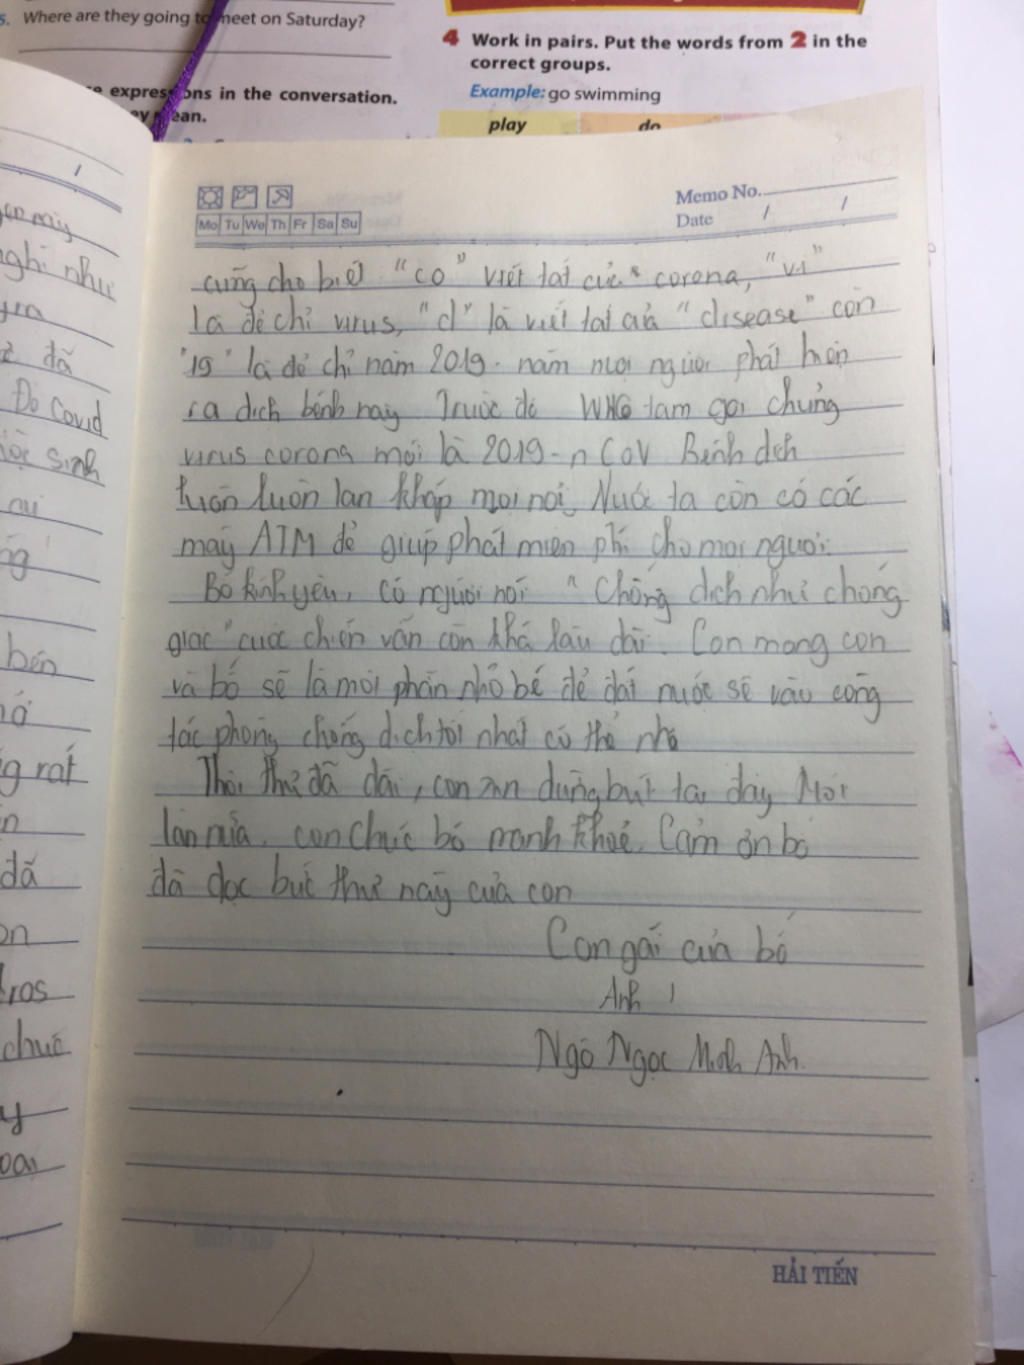 5. Where are they going to meet on Saturday?
4 Work in pairs. Put the words from 2 in the
correct groups.
expressions in the conversation.
Example: go swimming
ey mean.
play do
Memo No.
Date / /
Mo Tu We Th Fr Sa Su
cũng cho biết "co" viết tắt của "corona, "vi"
là để chỉ virus, "d" là viết tắt của "disease" còn
"19" là để chỉ năm 2019. năm mọi người phát hiện
ra dịch bệnh này Trước đó WHO tạm gọi chủng
virus corona mới là 2019-nCoV Bệnh dịch
luôn luôn lan khắp mọi nơi, Nước ta còn có các
máy ATM để giúp phát miễn phí cho mọi người.
Bố kính yêu, có người nói "Chống dịch như chống
giặc" cuộc chiến vẫn còn khá lâu dài. Con mong con
và bố sẽ là một phần nhỏ bé để đất nước sẽ vào công
tác phòng chống dịch tốt nhất có thể nhé
Thôi thư đã dài, con xin dừng bút tại đây Một
lần nữa. con chúc bố mạnh khoẻ. Cảm ơn bố
đã đọc bức thư này của con
Con gái của bố
Anh
Ngô Ngọc Minh Anh.
HẢI TIẾN
nghỉ như
đã
Đo Covid
sinh
bên
g rất
đã
chúc